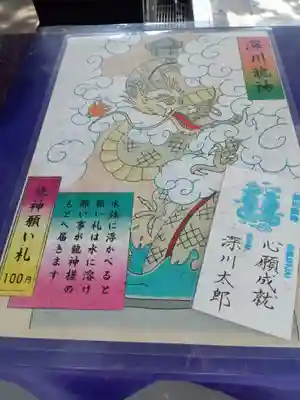 深川龍神
水鉢に浮かべると
願い札は水に溶け
願い事が龍神様の
もとへ届きます
龍神願い札
100円
心願成就
深川太郎